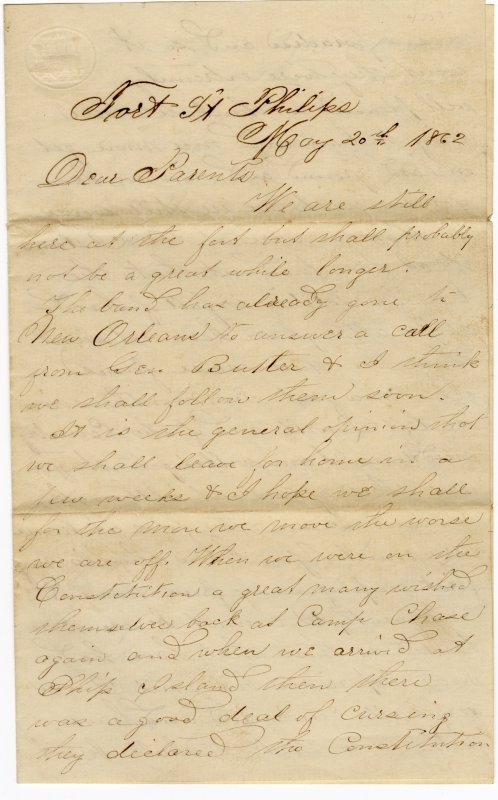 Fort St Philips
May 20th 1862
Dear Parents
We are still
here at the fort but shall probably
not be a great while longer.
The band has already gone to
New Orleans to answer a call
from Gen Butler & I think
we shall follow them soon.
It is the general opinion that
we shall leave for home in a
few weeks & I hope we shall
for the more we move the worse
we are off. When we were on the
Constitution a great many wished
themselves back at Camp Chase
again and when we arrived at
Ship Island then there
was a good deal of cursing
they declared the Constitution